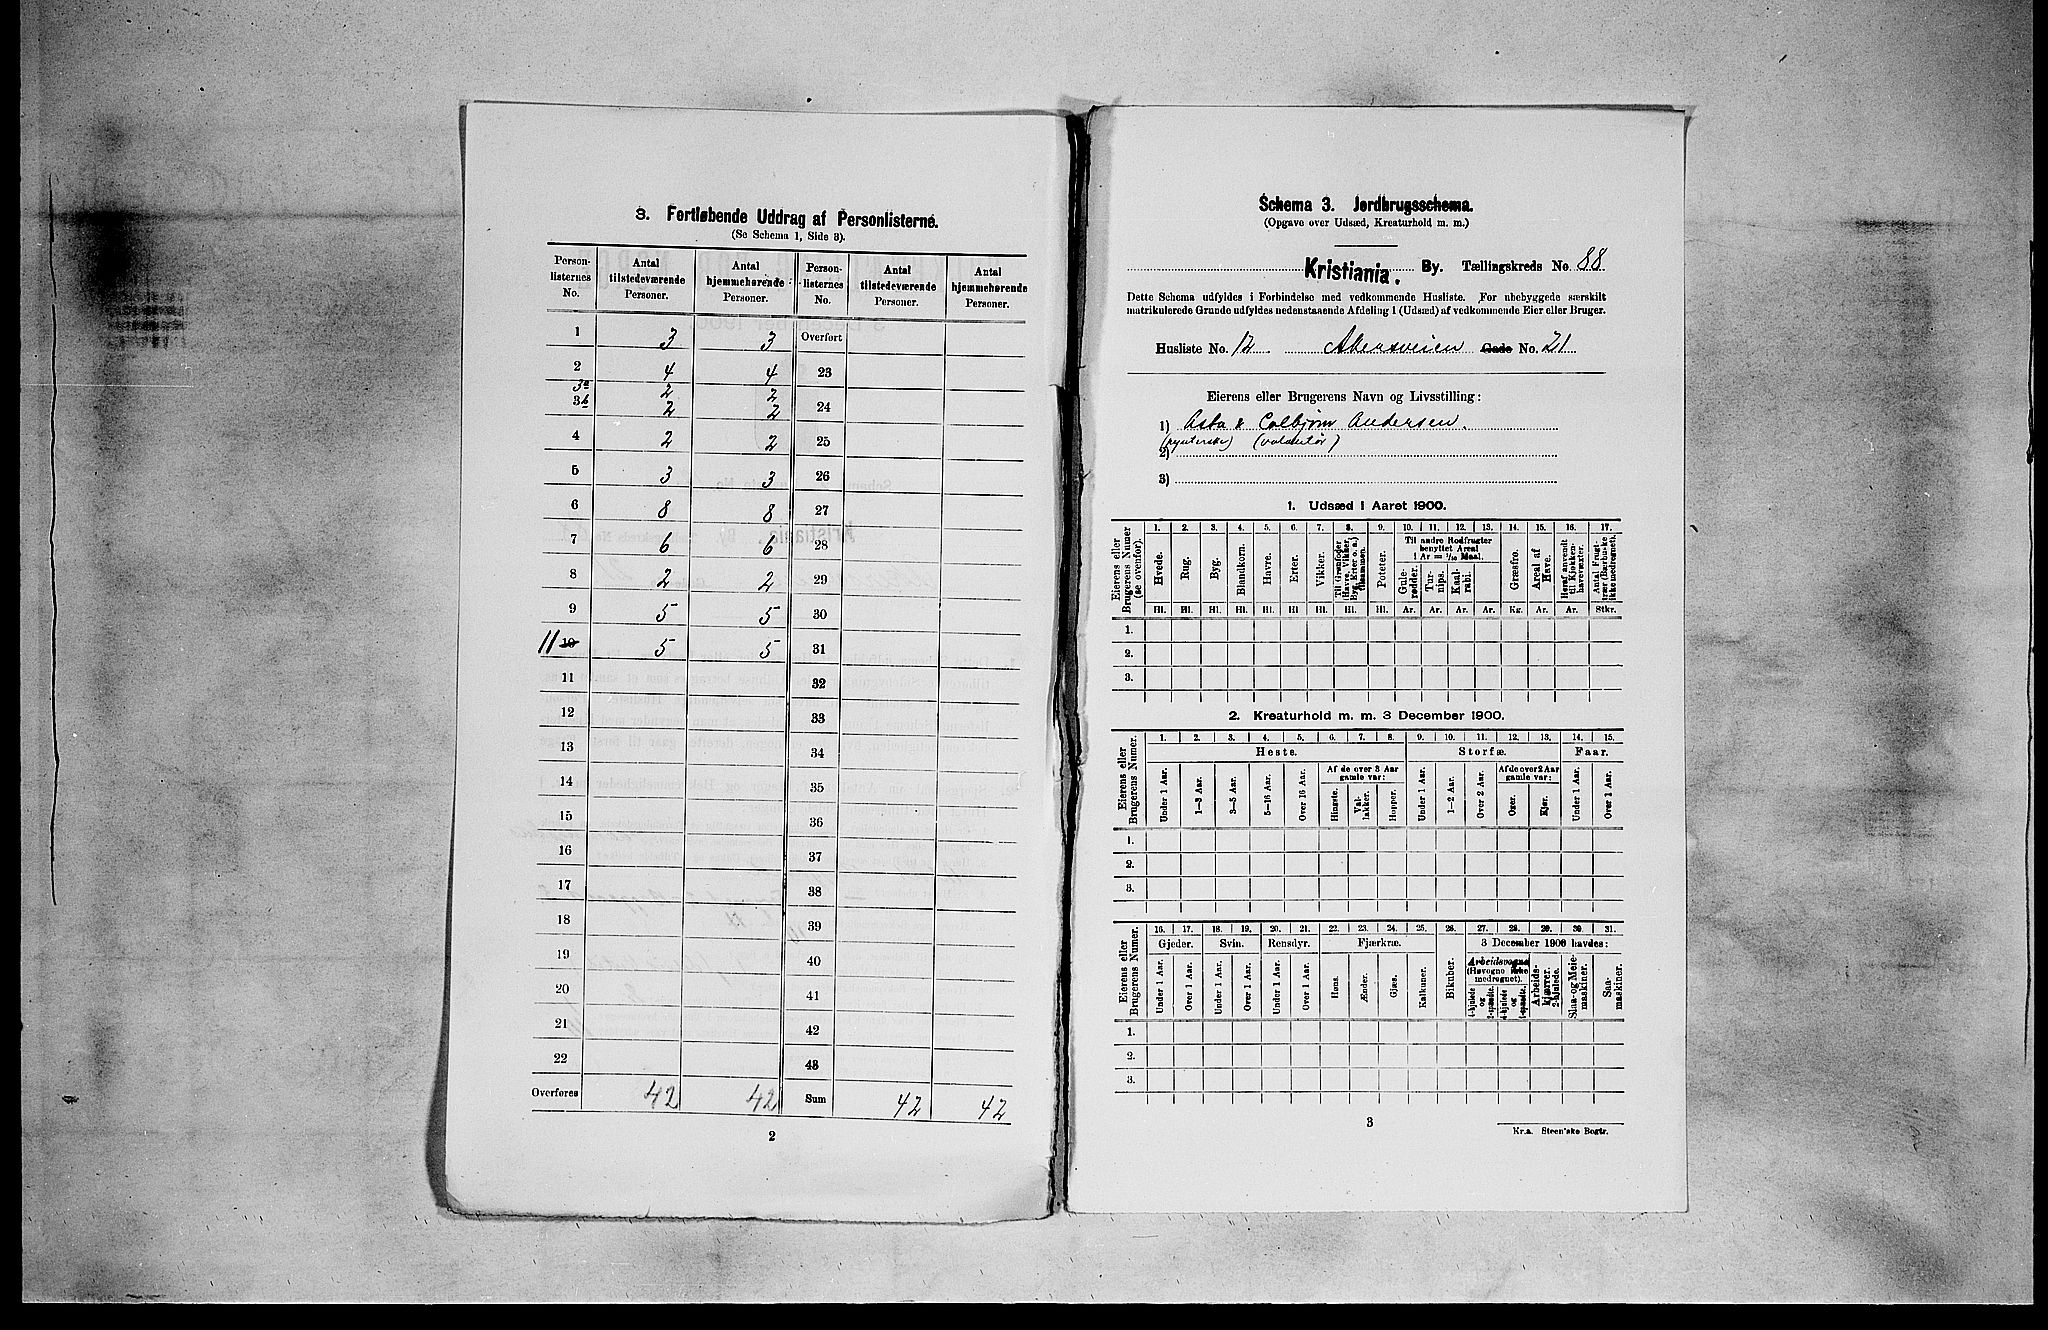 3. Fortløbende Uddrag af Personlisterne.
(Se Schema 1, Side 3).
Person-listernes No. | Antal tilstedeværende Personer. | Antal hjemmehørende Personer. | Person-listernes No. | Antal tilstedeværende Personer. | Antal hjemmehørende Personer.
1 3 3 Overført
2 4 4 23
3a 2 2
3b 2 2 24
4 2 2 25
5 3 3 26
6 8 8 27
7 6 6 28
8 2 2 29
9 5 5 30
11 10 5 5 31
11 32
12 33
13 34
14 35
15 36
16 37
17 38
18 39
19 40
20 41
21 42
22 43
Overføres 42 42 Sum 42 42
2
Schema 3. Jordbrugsschema.
(Opgave over Udsæd, Kreaturhold m. m.)
Kristiania. By. Tællingskreds No. 88
Dette Schema udfyldes i Forbindelse med vedkommende Husliste. For ubebyggede særskilt
matrikulerede Grunde udfyldes nedenstaaende Afdeling 1 (Udsæd) af vedkommende Eier eller Bruger.
Husliste No. 12 Akersveien Gade No. 21
Eierens eller Brugerens Navn og Livsstilling:
1) Asta & Colbjørn Andersen.
(pynterske) (volontør)
2)
3)
1. Udsæd i Aaret 1900.
Eierens eller Brugerens Numer (se ovenfor).
1. 2. 3. 4. 5. 6. 7. 8. 9. 10. 11. 12. 13. 14. 15. 16. 17.
Hvede. Rug. Byg. Blandkorn. Havre. Erter. Vikker. Til Grønfoder (Havre, Vikker, Byg, Erter o. a.) tilsammen. Poteter.
Til andre Rodfrugter benyttet Areal 1 Ar = 1/10 Maal.
Gule-rødder. Tur-nips. Kaal-rabi. Græsfrø. Areal af Have. Heraf anvendt til Kjøkken-havevæxter. Antal Frugt-trær (Bærbuske ikke medregnet).
Hl. Hl. Hl. Hl. Hl. Hl. Hl. Hl. Hl. Ar. Ar. Ar. Ar. Kg. Ar. Ar. Stkr.
1.
2.
3.
2. Kreaturhold m. m. 3 December 1900.
Eierens eller Brugerens Numer.
1. 2. 3. 4. 5. 6. 7. 8. 9. 10. 11. 12. 13. 14. 15.
Heste. Storfæ. Faar.
Af de over 3 Aar gamle var: Af de over 2 Aar gamle var:
Under 1 Aar. 1—3 Aar. 3—5 Aar. 5—16 Aar. Over 16 Aar. Hingste. Val-lakker. Hopper. Under 1 Aar. 1—2 Aar. Over 2 Aar. Oxer. Kjør. Under 1 Aar. Over 1 Aar.
1.
2.
3.
Eierens eller Brugerens Numer.
16. 17. 18. 19. 20. 21. 22. 23. 24. 25. 26. 27. 28. 29. 30. 31.
Gjeder. Svin. Rensdyr. Fjærkræ. 3 December 1900 havdes:
Arbeidsvogne (Høvogne ikke medregnet).
Under 1 Aar. Over 1 Aar. Under 1 Aar. Over 1 Aar. Under 1 Aar. Over 1 Aar. Høns. Ænder. Gjæs. Kalkuner. Bikuber. 4-hjulede og 2-spændte. 4-hjulede og 1-spændte. Arbeids-kjærrer. 2-hjulede. Slaa- og Meie-maskiner. Saa-maskiner.
1.
2.
3.
3
Kr.a. Steen'ske Bogtr.